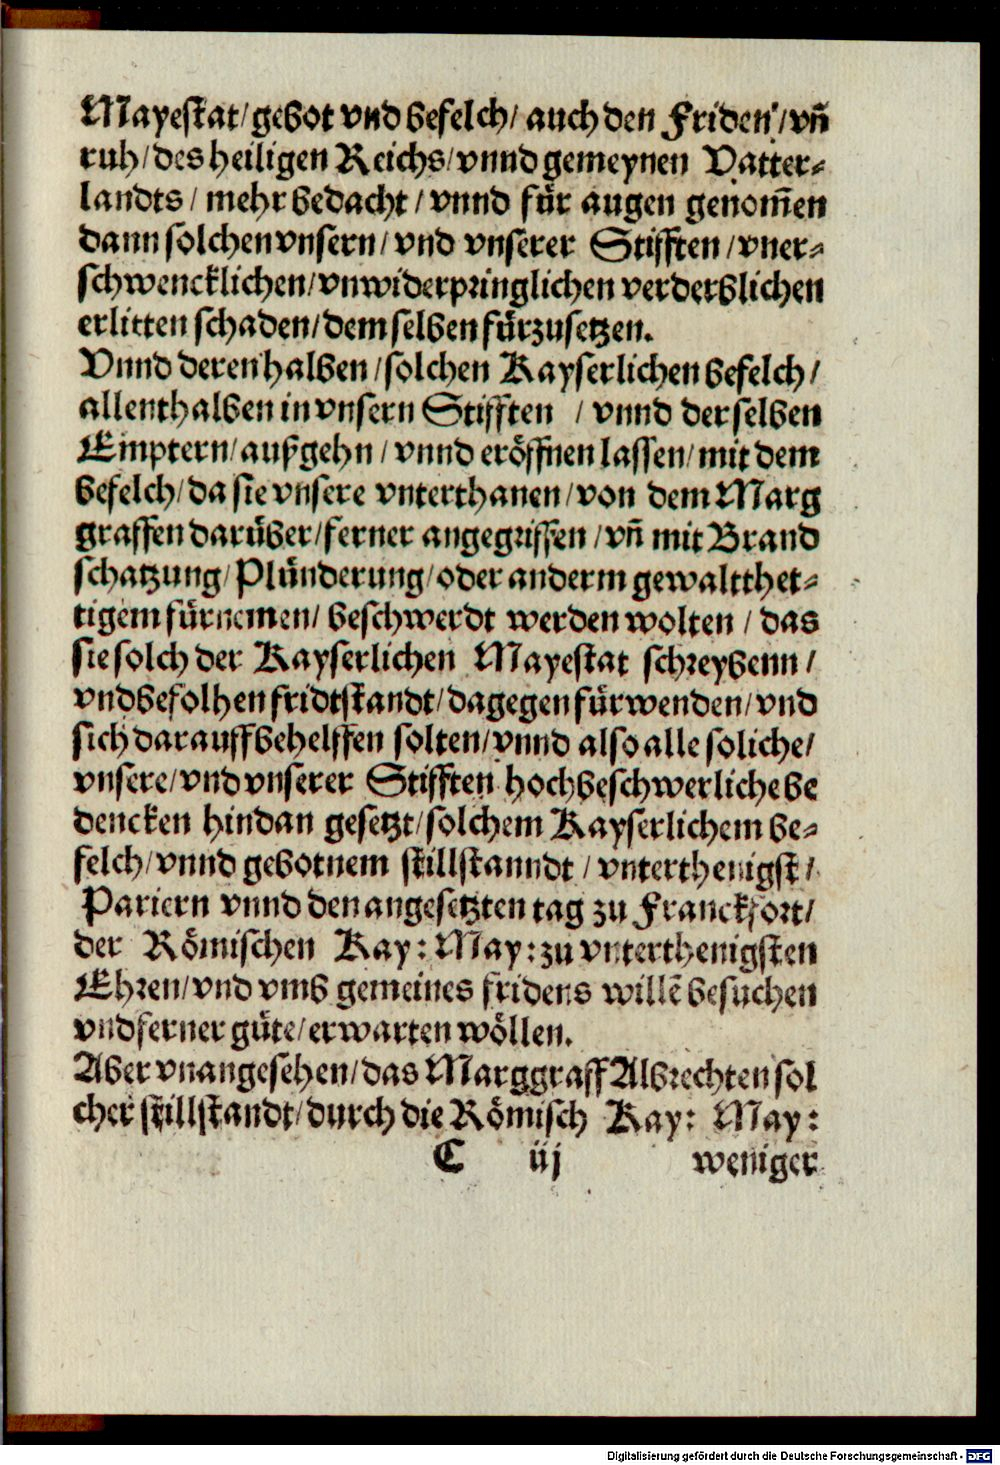 Mayestat/gebot vnd befelch/ auch den Friden/vñ
ruh/des heiligen Reichs/vnnd gemeynen Vatter-
landts / mehr bedacht / vnnd für augen genom̃en
dann solchen vnsern/ vnd vnserer Stifften /vner-
schwencklichen/vnwiderpringlichen verderblichen
erlitten schaden/dem selben fürzusetzen.
Vnnd deren halben /solchen Kayserlichen befelch/
allenthalben in vnsern Stifften / vnnd derselben
Emptern/außgehn / vnnd eröffnen lassen/mit dem
befelch/da sie vnsere vnterthanen/von dem Marg
graffen darüber/ferner angegriffen /vñ mit Brand
schatzung/Plünderung/oder anderm gewaltthet-
tigem fürnemen/ beschwerdt werden wolten / das
sie solch der Kayserlichen Mayestat schreybenn /
vnd befolhen fridtstandt/dagegen fürwenden/vnd
sich darauff behelffen solten/vnnd also alle soliche/
vnsere/vnd vnserer Stifften hochbeschwerliche be
dencken hindan gesetzt/solchem Kayserlichem be-
felch/vnnd gebotnem stillstanndt / vnterthenigst/
Pariern vnnd den angesetzten tag zu Franckfort/
der Römischen Kay: May: zu vnterthenigsten
Ehren/vnd vmb gemeines fridens willẽ besuchen
vnd ferner güte/erwarten wöllen.
Aber vnangesehen/das Marggraff Albrechten sol
cher stillstandt/durch die Römisch Kay: May:
C iij weniger
Digitalisierung gefördert durch die Deutsche Forschungsgemeinschaft - DFG